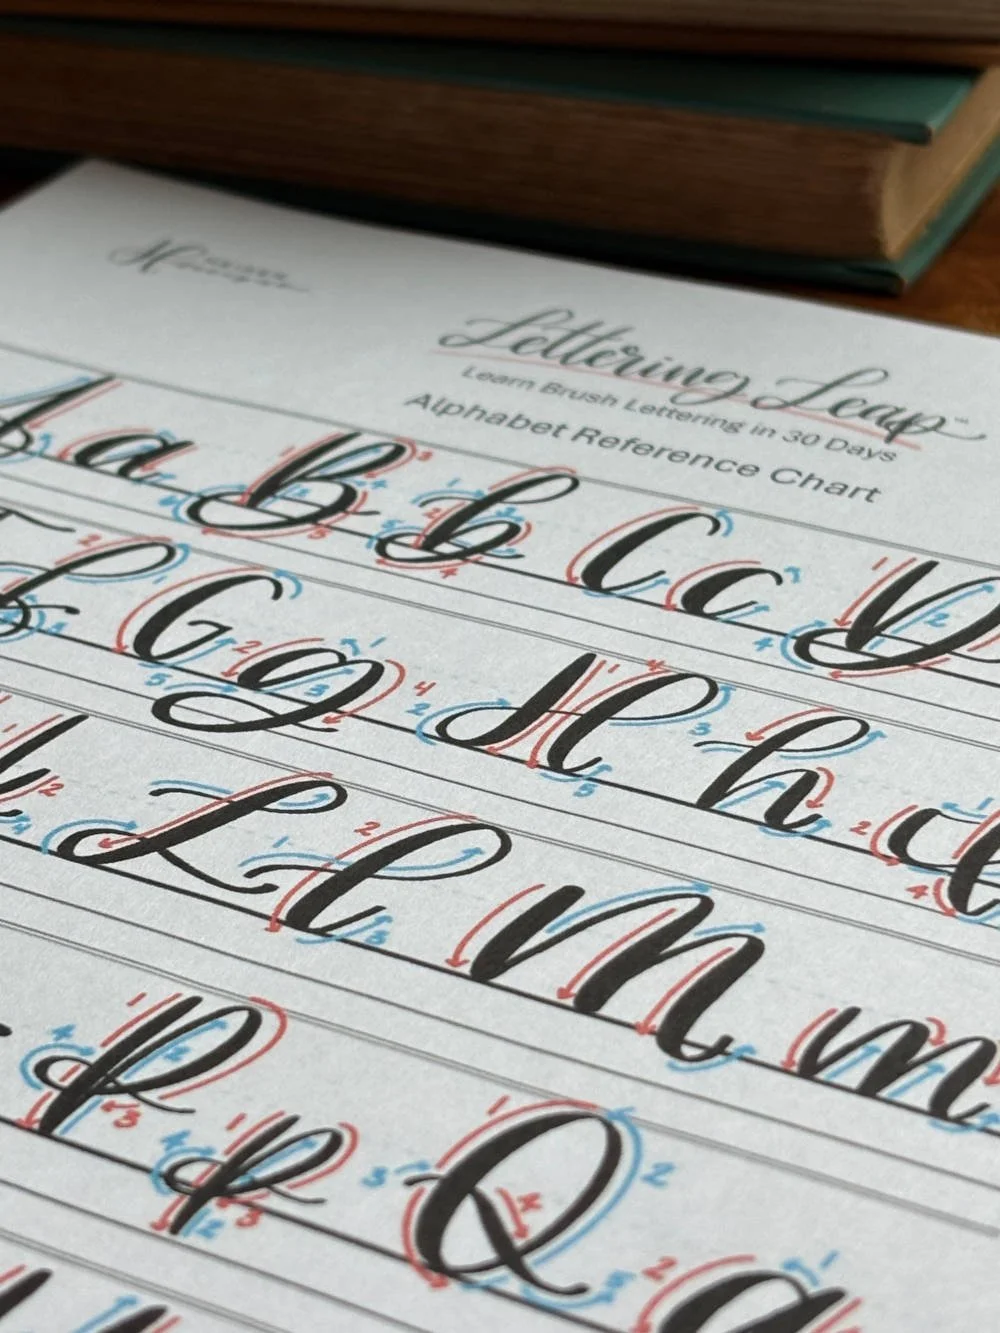 Lettering Leap™
Learn Brush Lettering in 30 Days
Alphabet Reference Chart
A a B b C c D
G g H h
L l M m
P p Q q